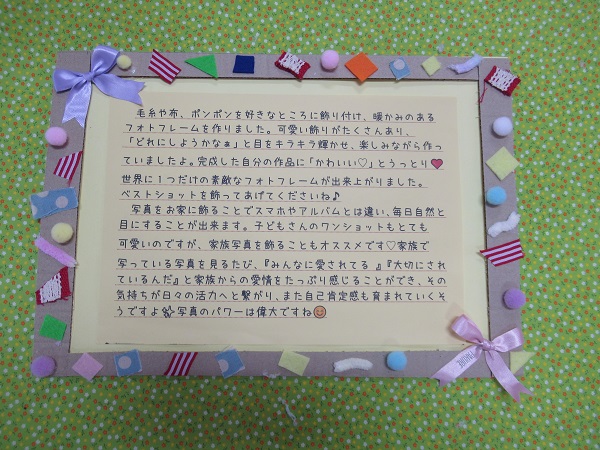 毛糸や布、ポンポンを好きなところに飾り付け、暖かみのある
フォトフレームを作りました。可愛い飾りがたくさんあり、
「どれにしようかなぁ」と目をキラキラ輝かせ、楽しみながら作っ
ていましたよ。完成した自分の作品に「かわいい♡」とうっとり❤
世界に１つだけの素敵なフォトフレームが出来上がりました。
ベストショットを飾ってあげてくださいね♪
写真をお家に飾ることでスマホやアルバムとは違い、毎日自然と
目にすることが出来ます。子どもさんのワンショットもとても
可愛いのですが、家族写真を飾ることもオススメです♡家族で
写っている写真を見るたび、『みんなに愛されてる』『大切にされ
ているんだ』と家族からの愛情をたっぷり感じることができ、その
気持ちが日々の活力へと繋がり、また自己肯定感も育まれていくそ
うですよ✨写真のパワーは偉大ですね😊